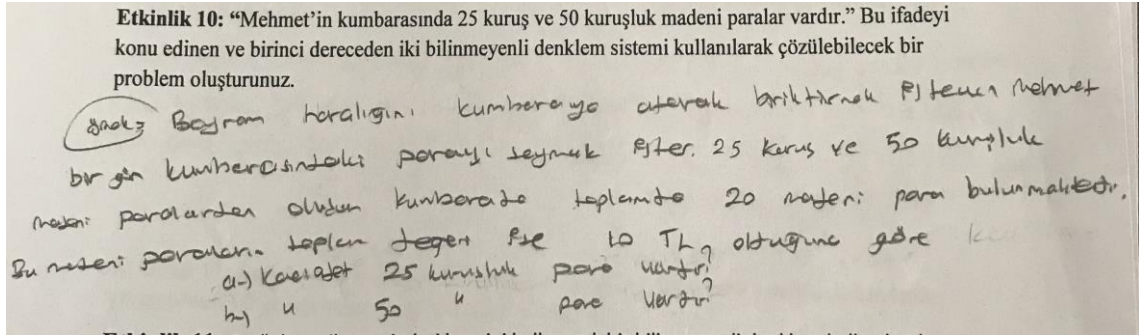 Etkinlik 10: “Mehmet’in kumbarasında 25 kuruş ve 50 kuruşluk madeni paralar vardır.” Bu ifadeyi
konu edinen ve birinci dereceden iki bilinmeyenli denklem sistemi kullanılarak çözülebilecek bir
problem oluşturunuz.
Bayram harçlığını kumbaraya atarak biriktirmek isteyen Mehmet
bir gün kumbarasındaki parayı saymak ister. 25 kuruş ve 50 kuruşluk
madeni paralardan oluşan kumbarada toplamda 20 madeni para bulunmaktadır.
Bu madeni paraların toplam değeri ise 10 TL olduğuna göre
a-) Kaç adet 25 kuruşluk para vardır?
b-) " 50 " para vardır?